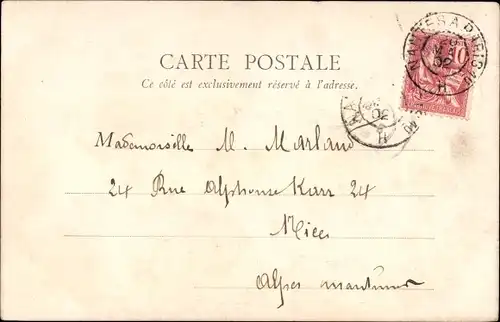 CARTE POSTALE
Ce côté est exclusivement réservé à l'adresse.
NANTES A PARIS
10
02
H
02
H
Mademoiselle M. Marland
24 Rue Alphonse Karr 24
Nice
Alpes maritimes